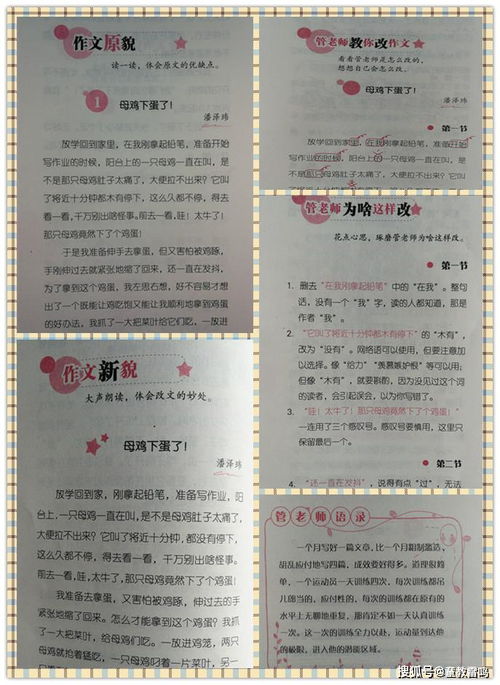 作文原貌
读一读，体会原文的优缺点。
1 母鸡下蛋了！
潘泽玮
放学回到家里，在我刚拿起铅笔，准备开始
写作业的时候，阳台上的一只母鸡一直在叫，是
不是那只母鸡肚子太痛了，大便拉不出来？它叫
了将近十分钟都木有停下，这么久都不停，得去
看一看，千万别出啥怪事。前去一看，哇！太牛了！
那只母鸡竟然下了个鸡蛋！
于是我准备伸手去拿蛋，但又害怕被鸡啄，
手刚伸过去就紧张地缩了回来，还一直在发抖，
为了拿到这个鸡蛋，我左思右想，好不容易才想
出了一个既能让鸡吃饱又能让我顺利地拿到鸡蛋
的好办法。我抓了一大把菜叶给它们吃，一放进
作文新貌
大声朗读，体会改文的妙处。
母鸡下蛋了！
潘泽玮
放学回到家，刚拿起铅笔，准备写作业，阳
台上，一只母鸡一直在叫，是不是母鸡肚子太痛了，
大便拉不出来？它叫了将近十分钟，都没有停下，
这么久都不停，得去看一看，千万别出啥怪事。
前去一看，哇，太牛了，那只母鸡竟然下了个鸡蛋！
我准备去拿蛋，又害怕被鸡啄，伸过去的手
紧张地缩了回来。怎么才能拿到这个鸡蛋？我抓
了一大把菜叶，给母鸡们吃。一放进鸡笼，两只
母鸡就抢着猛吃，一只母鸡叼着一片菜叶，另一
管老师教你改作文
看看管老师是怎么改的，
想想自己会怎么改。
母鸡下蛋了！
潘泽玮
第一节
放学回到家里，在我刚拿起铅笔，准备开始
写作业的时候，阳台上的一只母鸡一直在叫，是
不是那只母鸡肚子太痛了，大便拉不出来？它叫
了将近十分钟都木有停下，这么久都不停，得去
管老师为啥这样改
花点心思，琢磨管老师为啥这样改。
第一节
1. 删去“在我刚拿起铅笔”中的“在我”。整句
话，没有一个“我”字，读的人都知道，那是
作者“我”。
2. “它叫了将近十分钟都木有停下”的“木有”，
改为“没有”。网络语可以使用，但要注意加
以选择。像“给力”“羡慕嫉妒恨”等可以用；
但像“木有”，就要斟酌，因为没见过这个词
的读者，会引起误会，以为你写错了。
3. “哇！太牛了！那只母鸡竟然下了个鸡蛋！”
一连用了三个感叹号。感叹号要慎用，这里只
保留最后一个。
第二节
4. “还一直在发抖”，说得有点“过”，无法
管老师语录
一个月写好一篇文章，比一个月粗制滥造、
胡乱应付地写四篇，成效要好得多。道理很简
单，一个运动员一天训练四次，每次训练都吊
儿郎当的，应付性的，每次的训练都在原有的
水平上无聊地重复，那肯定不如一天认真训练
一次。这一次的训练全力以赴，运动量到达他
的极限，进入他的潜能区域。
搜狐号@童教喜鸣